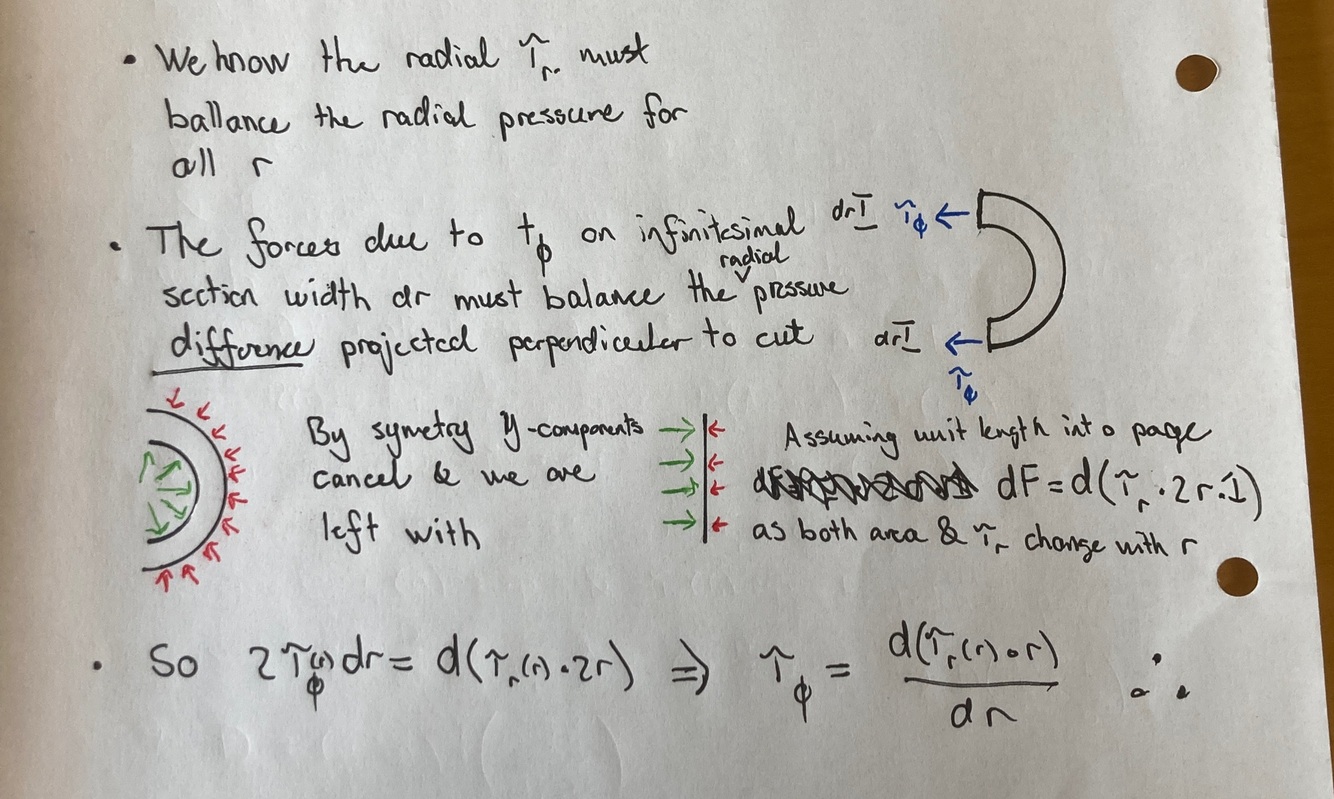 • We know the radial τr must
ballance the radial pressure for
all r
• The forces due to tϕ on infinitesimal
section width dr must balance the radial pressure
difference projected perpendiculer to cut
dr1 τϕ ←
dr1 ←
τϕ
By symetry y-components
cancel & we are
left with
Assuming unit length into page
dF = d(τr · 2r · 1)
as both area & τr change with r
• So 2τϕ(r)dr = d(τr(r) · 2r) ⇒ τϕ = d(τr(r) · r) / dr ∴